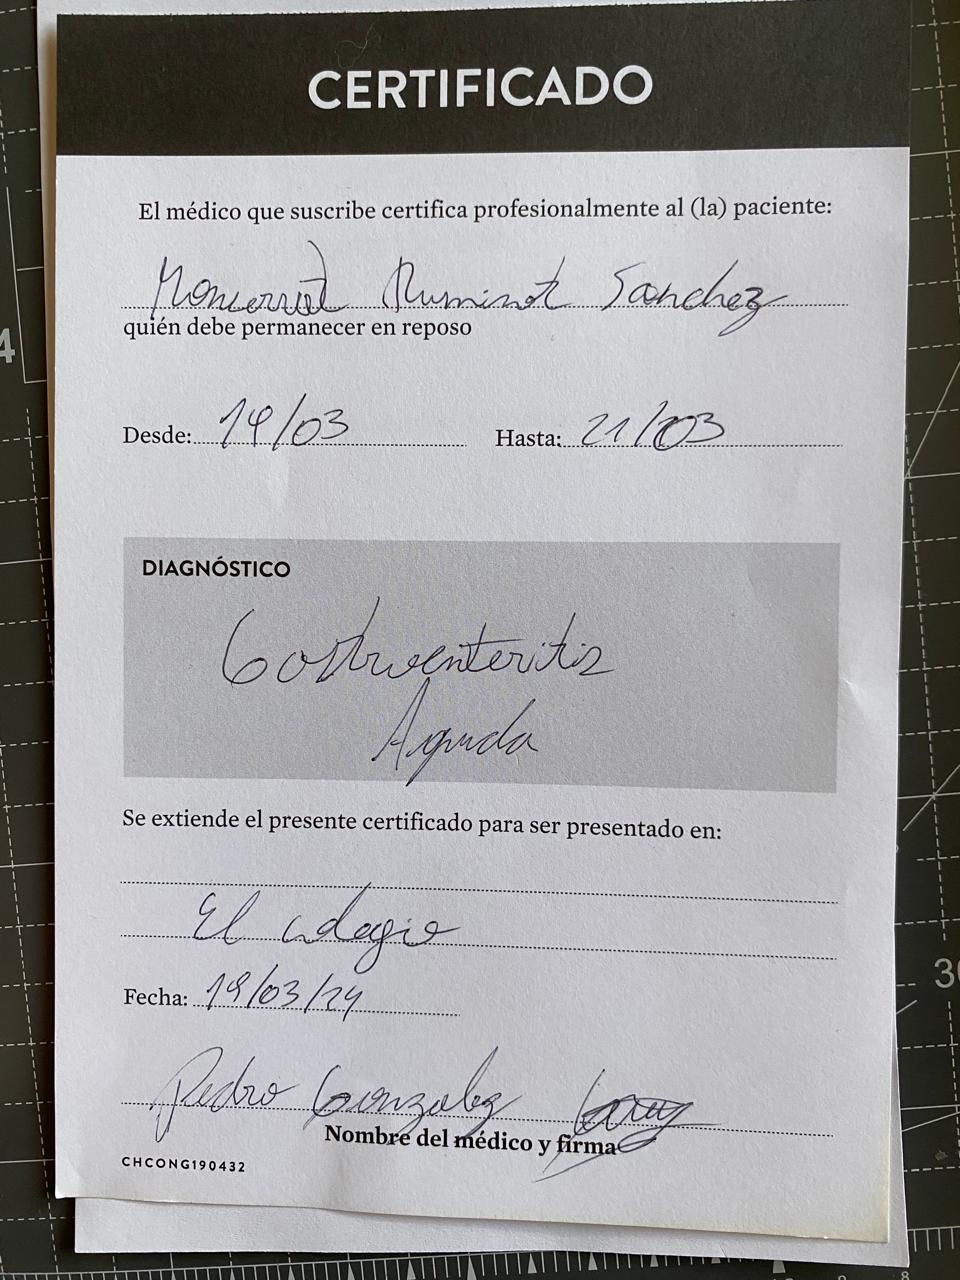 CERTIFICADO
El médico que suscribe certifica profesionalmente al (la) paciente:
Monserrat Ruminot Sanchez
quién debe permanecer en reposo
Desde: 19/03 Hasta: 21/03
DIAGNÓSTICO
Gastroenteritis
Aguda
Se extiende el presente certificado para ser presentado en:
El colegio
Fecha: 19/03/24
Pedro Gonzalez
Nombre del médico y firma
CHCONG190432
4
30
8